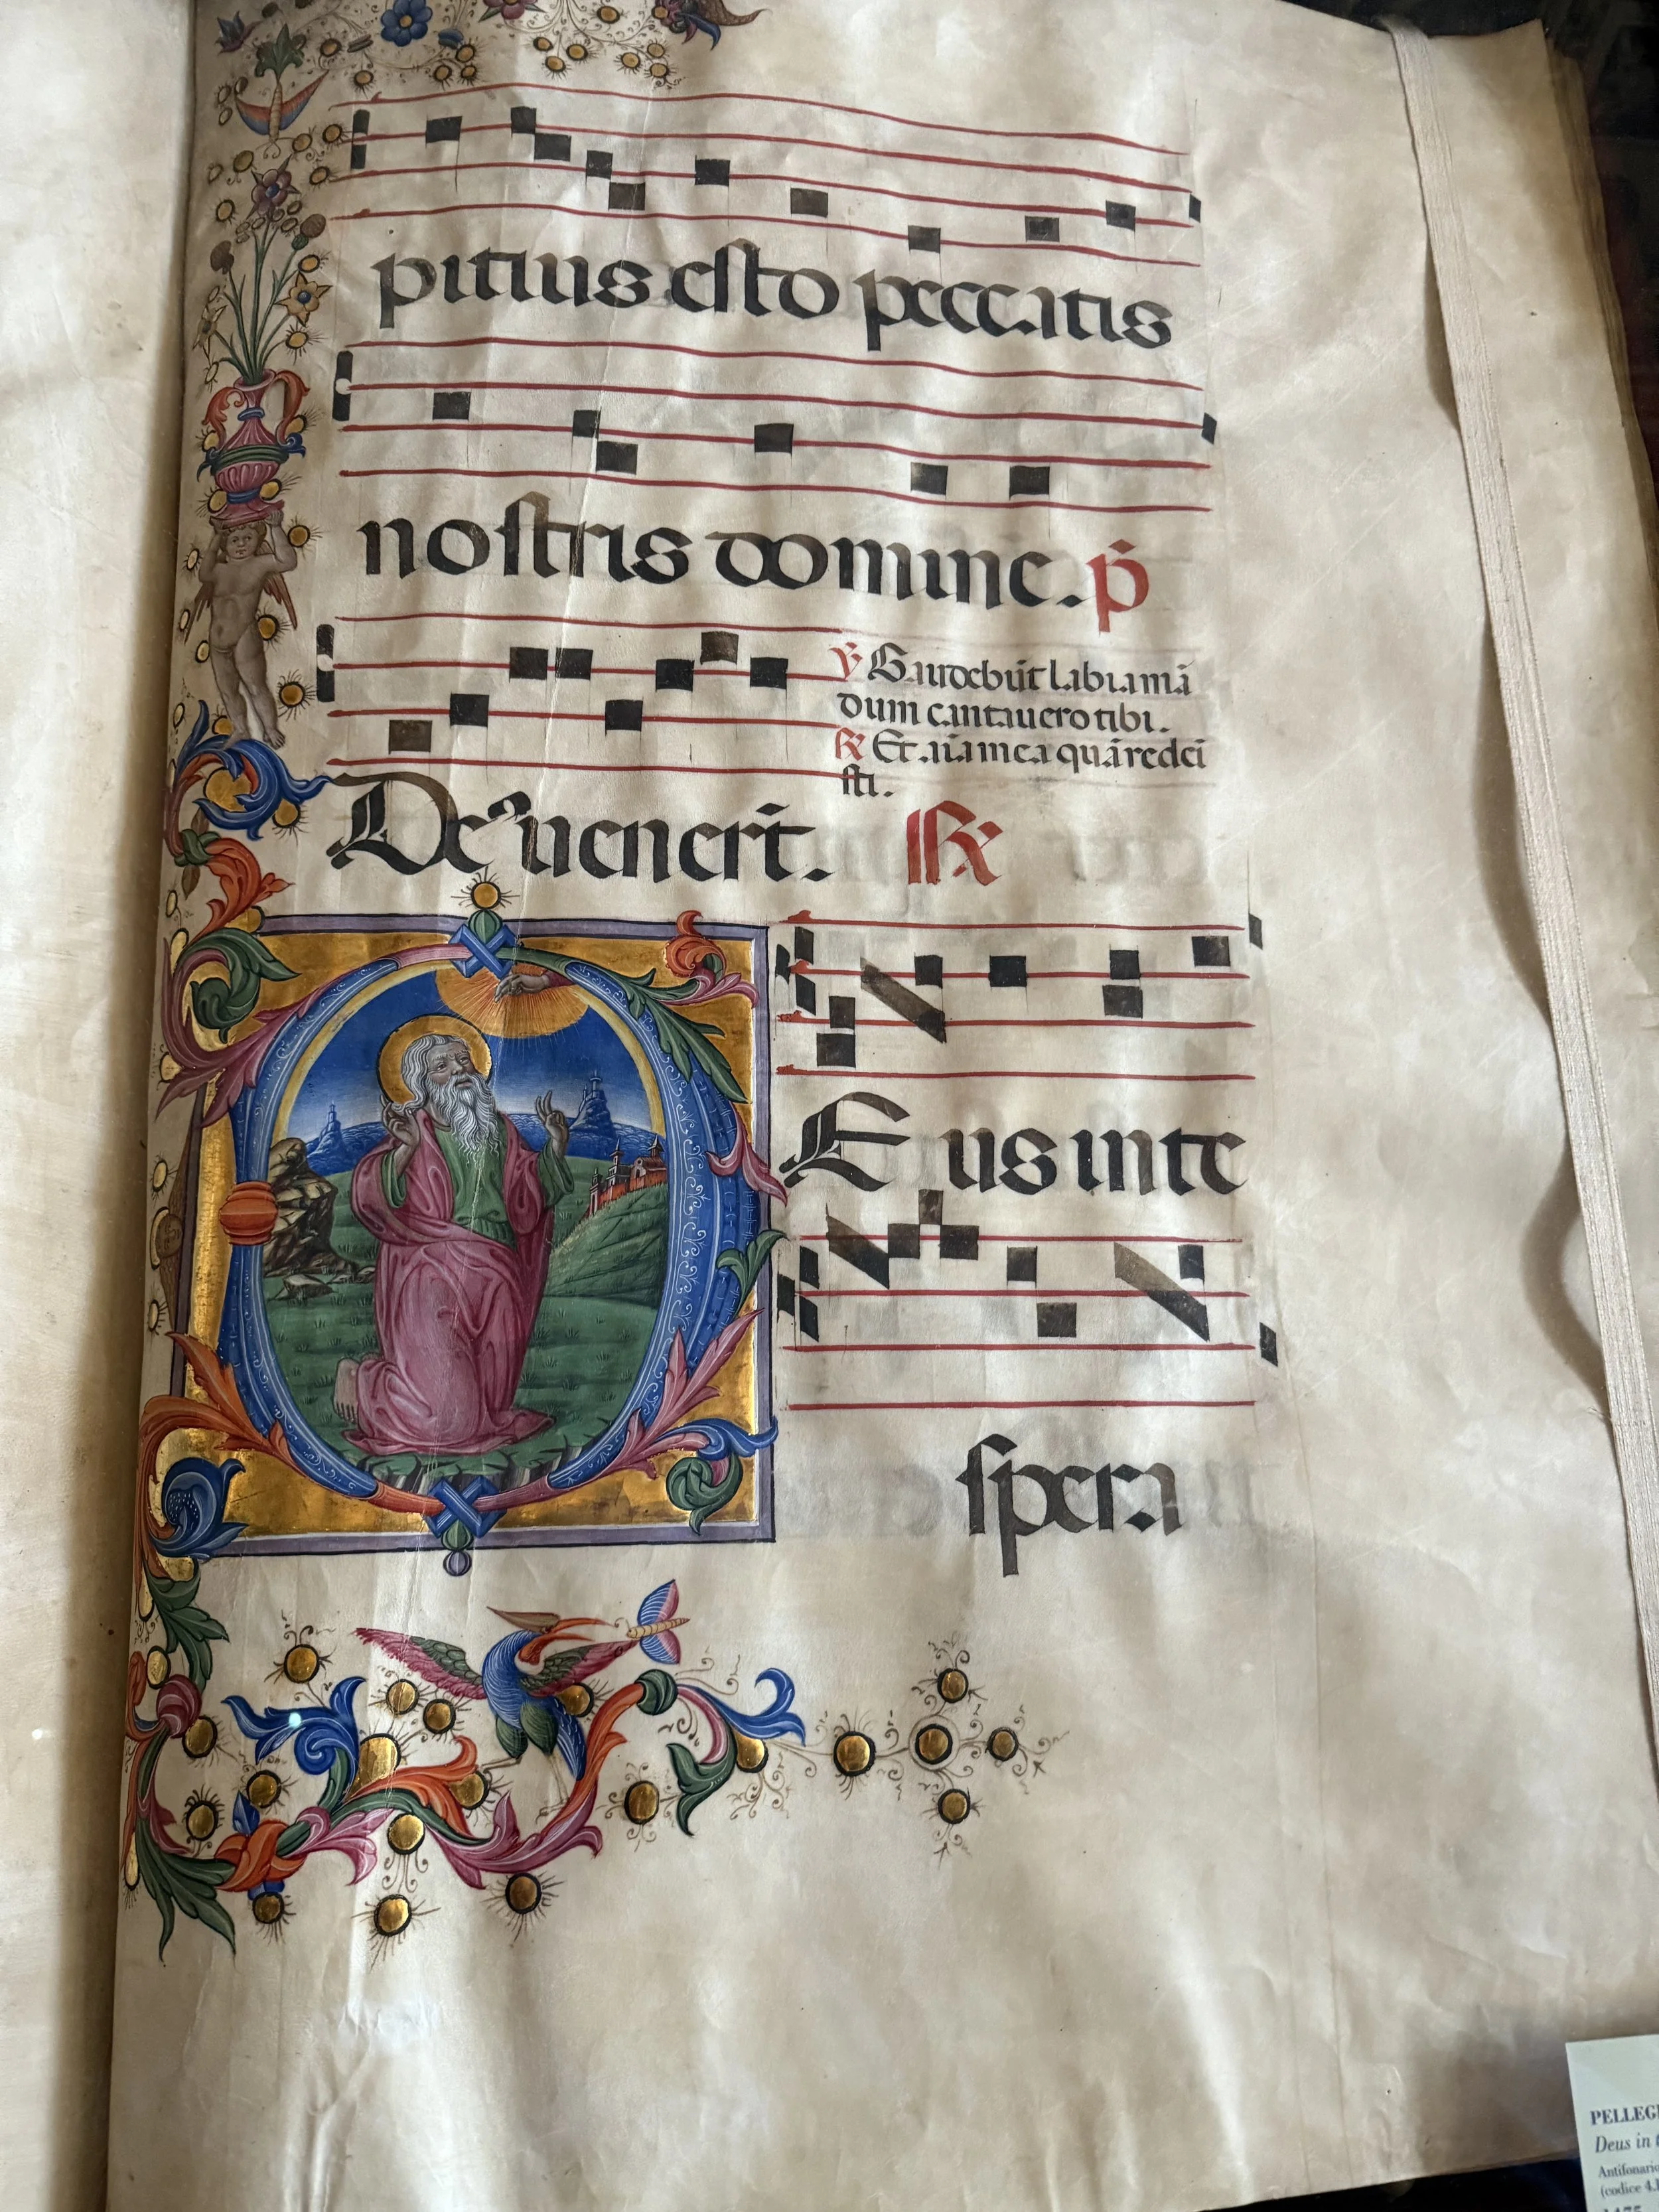 pitius esto peccatis
nostris domine. p̄
℣ Gaudebūt labia mā
dum cantauero tibi.
℟ Et aīa mea quā redei
sti.
De uenert̄. ℟
E us in te
spera
PELLEG
Deus in t
Antifonario
(codice 4.